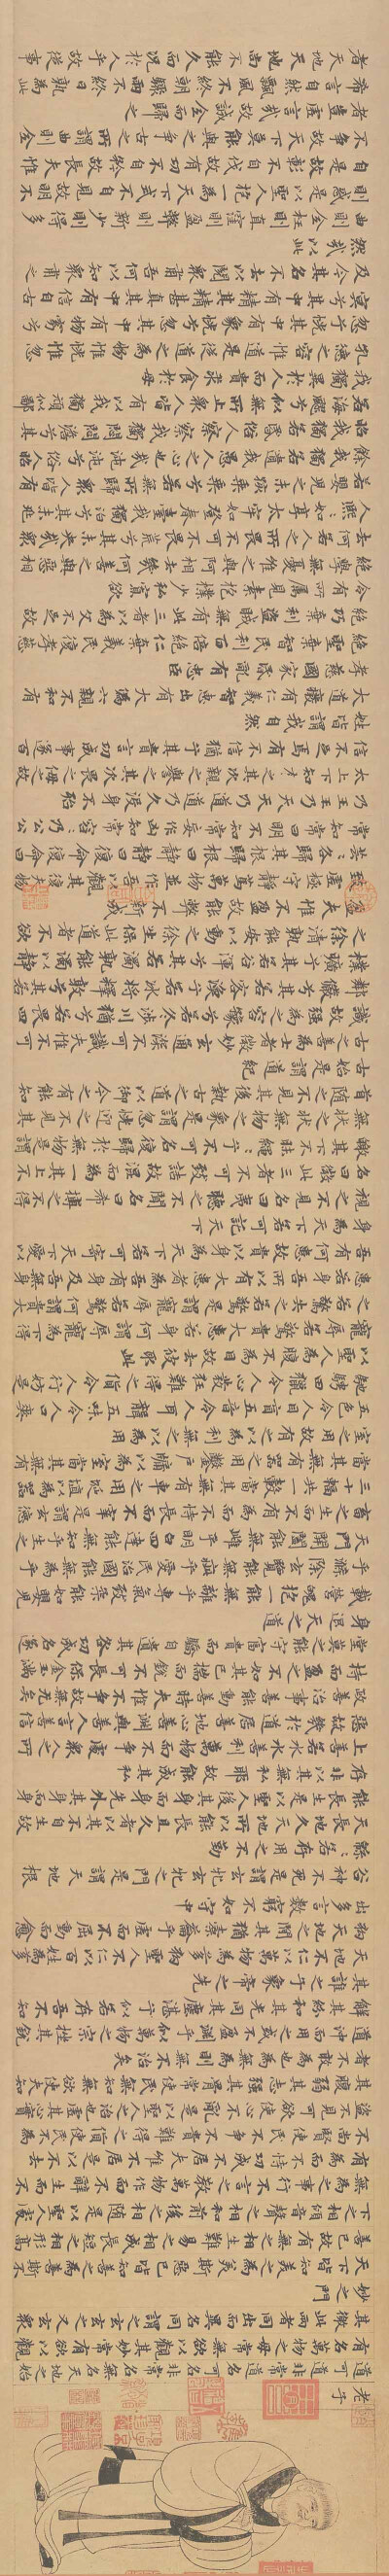 老子
道可道非常道名可名非常名無名天地之始
有名萬物之母常無欲以觀其妙常有欲以觀
其徼此兩者同出而異名同謂之玄玄之又玄衆
妙之門
天下皆知美之為美斯惡已皆知善之為善斯不
善已故有無之相生難易之相成長短之相形高
下之相傾音聲之相和前後之相隨是以聖人處
無為之事行不言之教萬物作而不辭生而不
有為而不恃功成不居夫惟不居是以不去
不尚賢使民不爭不貴難得之貨使民不為
盜不見可欲使心不亂是以聖人之治也虛其心實
其腹弱其志強其骨常使民無知無欲使夫知
者不敢為也為無為則無不治矣
道沖而用之或不盈淵乎似萬物之宗挫其銳
解其紛和其光同其塵湛乎似若存吾不知
其誰之子象帝之先
天地不仁以萬物為芻狗聖人不仁以百姓為芻
狗天地之間其猶橐籥乎虛而不屈動而愈
出多言數窮不如守中
谷神不死是謂玄牝玄牝之門是謂天地根
綿綿若存用之不勤
天長地久天地所以能長且久者以其不自生故
能長生是以聖人後其身而身先外其身而身
存非以其無私耶故能成其私
上善若水水善利萬物而不爭處衆人之所
惡故幾於道居善地心善淵與善人言善信
政善治事善能動善時夫惟不爭故無尤矣
持而盈之不如其已揣而銳之不可長保金玉滿
堂莫之能守富貴而驕自遺其咎功成名遂
身退天之道
載營魄抱一能無離乎專氣致柔能如嬰兒
乎滌除玄覽能無疵乎愛民治國能無為乎
天門開闔能無雌乎明白四達能無知乎生之
畜之生而不有為而不恃長而不宰是謂玄德
三十輻共一轂當其無有車之用埏埴以為器
當其無有器之用鑿戶牖以為室當其無有
室之用故有之以為利無之以為用
五色令人目盲五音令人耳聾五味令人口爽
馳騁田獵令人心發狂難得之貨令人行妨是
以聖人為腹不為目故去彼取此
寵辱若驚貴大患若身何謂寵辱寵為下得
之若驚失之若驚是謂寵辱若驚何謂貴大
患若身吾所以有大患者為吾有身及吾無身
吾有何患故貴以身為天下若可寄天下愛以
身為天下若可託天下
視之不見名曰夷聽之不聞名曰希搏之不得
名曰微此三者不可致詰故混而為一其上不
皦其下不昧繩繩兮不可名復歸於無物是謂
無狀之狀無物之象是謂忽恍迎之不見其
首隨之不見其後執古之道以御今之有能知
古始是謂道紀
古之善為士者微妙玄通深不可識夫惟不可
識故強為之容豫兮若冬涉川猶兮若畏四
鄰儼兮其若客渙兮若冰將釋敦兮其若
樸曠兮其若谷渾兮其若濁孰能濁以靜
之徐清孰能安以動之徐生保此道者不欲
盈夫惟不盈故能弊不新成
致虛極守靜篤萬物並作吾以觀其復夫物
芸芸各歸其根歸根曰靜靜曰復命復命曰
常知常曰明不知常妄作凶知常容容乃公公
乃王王乃天天乃道道乃久沒身不殆
太上下知有之其次親之譽之其次畏之侮之故
信不足焉有不信猶兮其貴言功成事遂百
姓皆謂我自然
大道廢有仁義智慧出有大偽六親不和有
孝慈國家昏亂有忠臣
絕聖棄智民利百倍絕仁棄義民復孝慈
絕巧棄利盜賊無有此三者以為文不足故
令有所屬見素抱樸少私寡欲
絕學無憂唯之與阿相去幾何善之與惡相
去何若人之所畏不可不畏荒兮其未央哉衆人
熙熙如享太牢如登春臺我獨泊兮其未兆
若嬰兒之未孩乘乘兮若無所歸衆人皆有
餘我獨若遺我愚人之心也哉沌沌兮俗人昭
昭我獨若昏俗人察察我獨悶悶澹兮其
若海飂兮似無所止衆人皆有以我獨頑似鄙
我獨異於人而貴求食於母
孔德之容惟道是從道之為物惟恍惟忽
忽兮恍其中有象恍兮忽其中有物窈兮
冥兮其中有精其精甚真其中有信自古
及今其名不去以閱衆甫吾何以知衆甫之
然哉以此
曲則全枉則直窪則盈弊則新少則得多
則惑是以聖人抱一為天下式不自見故明不
自是故彰不自伐故有功不自矜故長夫惟
不爭故天下莫能與之爭古之所謂曲則全
者豈虛言哉故誠全而歸之
希言自然飄風不終朝驟雨不終日孰為此
者天地天地尚不能久而況於人乎故從事